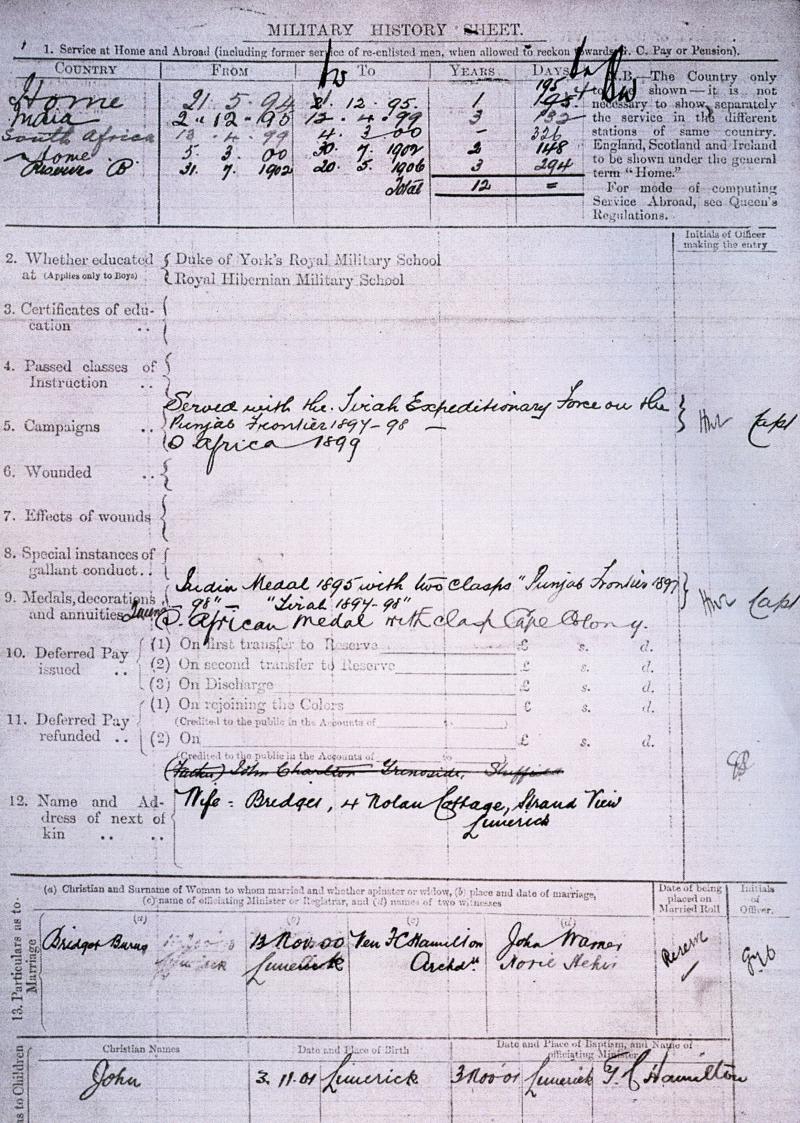 MILITARY HISTORY SHEET.
1. Service at Home and Abroad (including former service of re-enlisted men, when allowed to reckon towards G. C. Pay or Pension).
COUNTRY FROM TO YEARS DAYS
Home 21 . 5 . 94 12 . 95. 1 195
India 2 . 12 . 95 12 . 4 . 99 3 132
South Africa 13 . 4 . 99 4 . 3 00 - 326
Home 5 . 3 . 00 30 . 7 . 1902 2 148
Reserve B. 31 . 7 . 1902 20 . 5 . 1906 3 294
Total 12 =
N.B.—The Country only
to be shown—it is not
necessary to show separately
the service in the different
stations of same country.
England, Scotland and Ireland
to be shown under the general
term "Home."
For mode of computing
Service Abroad, see Queen's
Regulations.
Initials of Officer
making the entry
2. Whether educated at (Applies only to Boys)
Duke of York's Royal Military School
Royal Hibernian Military School
3. Certificates of edu-
cation ..
4. Passed classes of
Instruction ..
5. Campaigns ..
Served with the Tirah Expeditionary Force on the
Punjab Frontier 1897-98 —
S Africa 1899
Capt
6. Wounded ..
7. Effects of wounds
8. Special instances of
gallant conduct ..
9. Medals, decorations,
and annuities
India Medal 1895 with two clasps "Punjab Frontier 1897
- 98" - "Tirah 1897-98"
Queens S. African Medal with clasp Cape Colony.
Capt
10. Deferred Pay
issued ..
(1) On first transfer to Reserve £ s. d.
(2) On second transfer to Reserve £ s. d.
(3) On Discharge £ s. d.
11. Deferred Pay
refunded ..
(1) On rejoining the Colors £ s. d.
(Credited to the public in the Accounts of )
(2) On £ s. d.
(Credited to the public in the Accounts of )
(Father) John Charlton Grenoside, Sheffield
12. Name and Ad-
dress of next of
kin .. ..
Wife = Bridget, 4 Nolan Cottage, Strand View
Limerick
13. Particulars as to
Marriage
(a) Christian and Surname of Woman to whom married and whether spinster or widow, (b) place and date of marriage,
(c) name of officiating Minister or Registrar, and (d) names of two witnesses
Date of being
placed on
Married Roll
Initials
of
Officer.
(a) (b) (c) (d)
Bridget Burns 13 Nov. 00 Ven F C Hamilton John Warner Reserve
Limerick Archdn. Norie
as to Children
Christian Names Date and Place of Birth Date and Place of Baptism, and Name of
officiating Minister
John 3. 11. 01 Limerick 3 Nov 01 Limerick F. C Hamilton